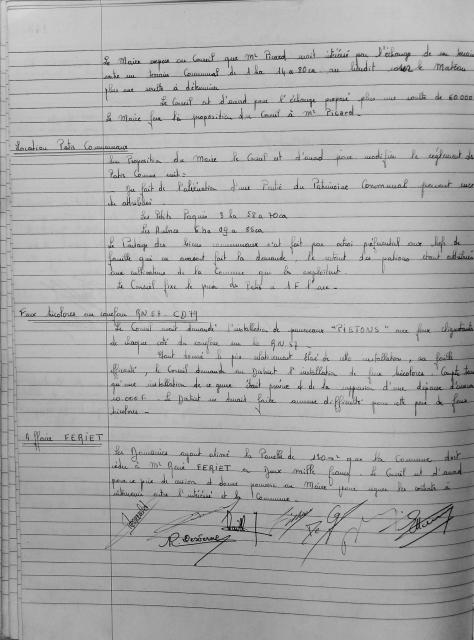 Le Maire expose au Conseil que Mr Picard serait intéressé par l'échange de un terrain
entre un terrain Communal de 1 ha 14 a 80 ca au lieudit le Mateau
plus une soulte à déterminer
Le Conseil est d'accord pour l'échange proposé plus une soulte de 60.000
Le Maire fera la proposition du Conseil à Mr Picard.
Location Patis Communaux
Sur Proposition du Maire le Conseil est d'accord pour modifier le règlement des
Patis Comme suit:
- Du fait de l'aliénation d'une Partie du Patrimoine Communal peuvent
être attribués
Les Petits Paquis 3 ha 58 a 70 ca
Les Aulnes 6 ha 09 a 86 ca
Le Partage des biens communaux s'est fait par priorité aux chefs de
famille qui en avaient fait la demande, le restant des portions étant attribuées
aux cultivateurs de la Commune qui les exploitent.
Le Conseil fixe le prix du Patis à 1 F l'are.
Feux tricolores au carrefour RN 57 - CD 79
Le Conseil avait demandé l'installation de panneaux "PISTONS" avec feux clignotants
de chaque côté du carrefour sur la RN 57.
Etant donné le prix relativement élevé de cette installation, sa faible
efficacité, le Conseil demande au District l'installation de feux tricolores. Compte tenu
qu'une installation de ce genre était prévue et de la suppression d'une dépense d'environ
10.000 F le District ne devrait faire aucune difficulté pour cette pose de feux
tricolores.
Affaire FERIET
Les Domaines ayant estimé la Parcelle de 130 m² que la Commune doit
céder à Mr René FERIET en Deux mille francs. Le Conseil est d'accord
pour ce prix de cession et donne pouvoir au Maire pour signer les contrats à
intervenir entre l'intéressé et la Commune.
R Desserme